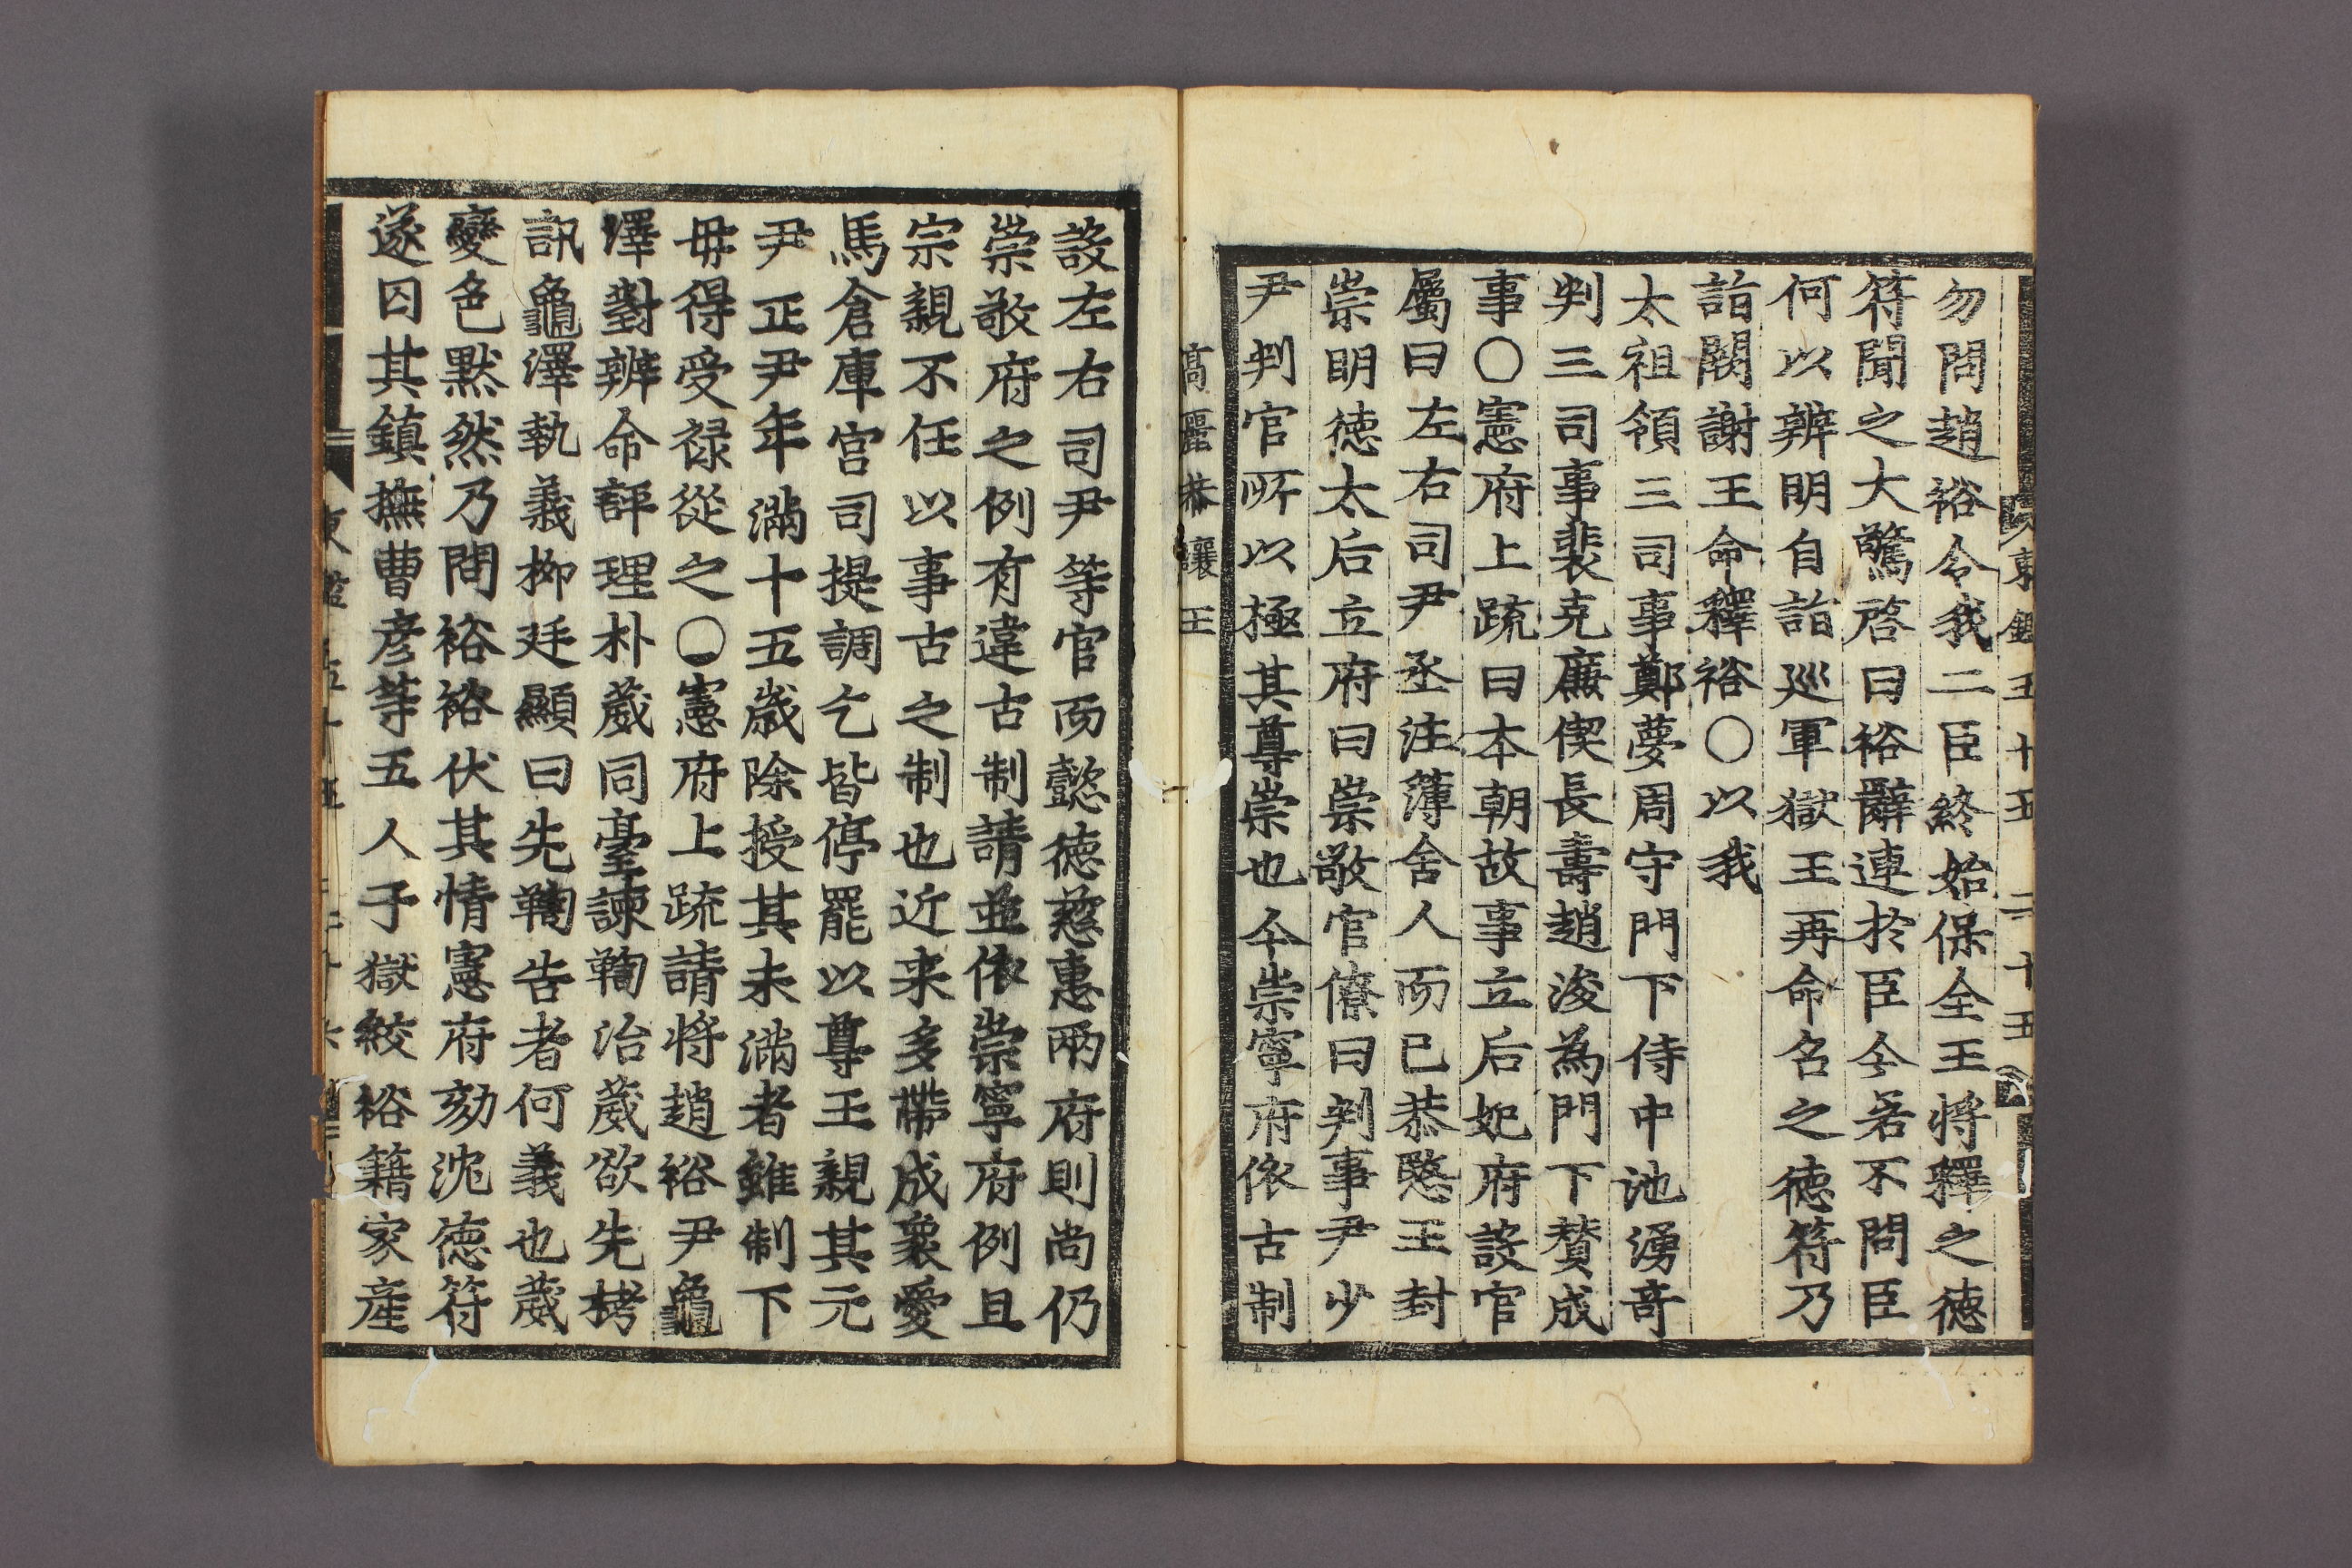 東鑑五十五 二十五
勿問趙裕令我二臣終始保全王將釋之德
符聞之大驚啓曰裕辭連於臣今若不問臣
何以辨明自詣巡軍獄王再命名之德符乃
詣闕謝王命釋裕〇以我
太祖領三司事鄭夢周守門下侍中池湧奇
判三司事裴克廉偰長壽趙浚為門下贊成
事〇憲府上疏曰本朝故事立后妃府設官
屬曰左右司尹丞注簿舍人而已恭愍王封
崇明德太后立府曰崇敬官僚曰判事尹少
尹判官所以極其尊崇也今崇寧府依古制
高麗恭讓王
設左右司尹等官而懿德慈惠兩府則尚仍
崇敬府之例有違古制請並依崇寧府例且
宗親不任以事古之制也近来多帶成衆愛
馬倉庫宮司提調乞皆停罷以尊王親其元
尹正尹年滿十五歲除授其未滿者雖制下
毋得受祿從之〇憲府上疏請將趙裕尹龜
澤對辨命評理朴葳同臺諫鞫治葳欲先栲
訊龜澤執義柳廷顯曰先鞫告者何義也葳
變色默然乃問裕裕伏其情憲府劾沈德符
遂囚其鎭撫曹彦等五人于獄絞裕籍家產